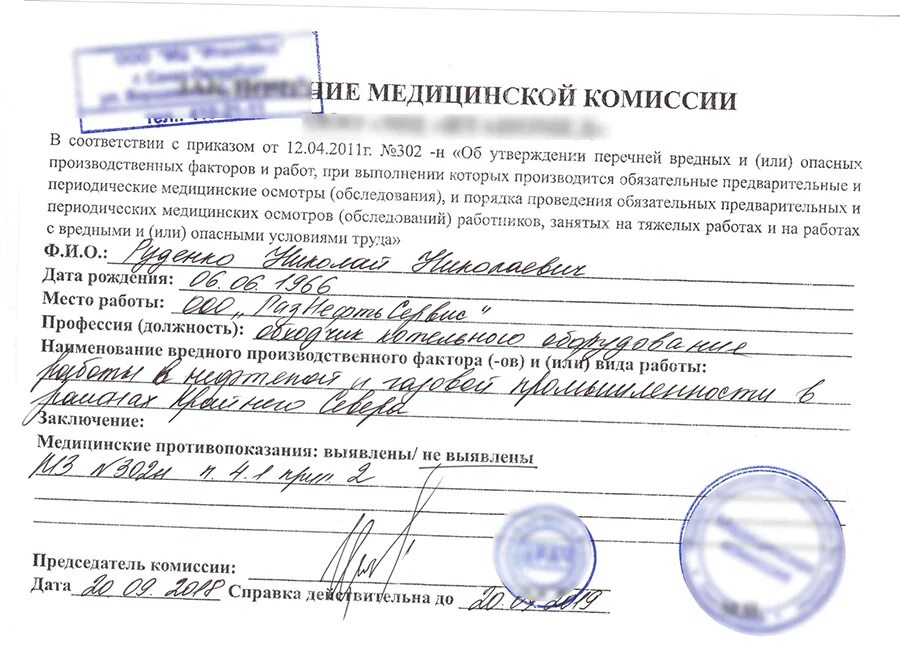 НИЕ МЕДИЦИНСКОЙ КОМИССИИ
В соответствии с приказом от 12.04.2011г. №302 -н «Об утверждении перечней вредных и (или) опасных
производственных факторов и работ, при выполнении которых производится обязательные предварительные и
периодические медицинские осмотры (обследования), и порядка проведения обязательных предварительных и
периодических медицинских осмотров (обследований) работников, занятых на тяжелых работах и на работах
с вредными и (или) опасными условиями труда»
Ф.И.О.: Руденко Николай Николаевич
Дата рождения: 06.06.1966
Место работы: ООО "РидНефтьСервис"
Профессия (должность): обходчик котельного оборудование
Наименование вредного производственного фактора (-ов) и (или) вида работы:
работы в нефтепой и газовой промышленности в
районах Крайнего Севера
Заключение:
Медицинские противопоказания: выявлены/ не выявлены
МЗ №302н п. 4.1 прил. 2
Председатель комиссии:
Дата 20.09.2018 Справка действительна до 20.09.2019